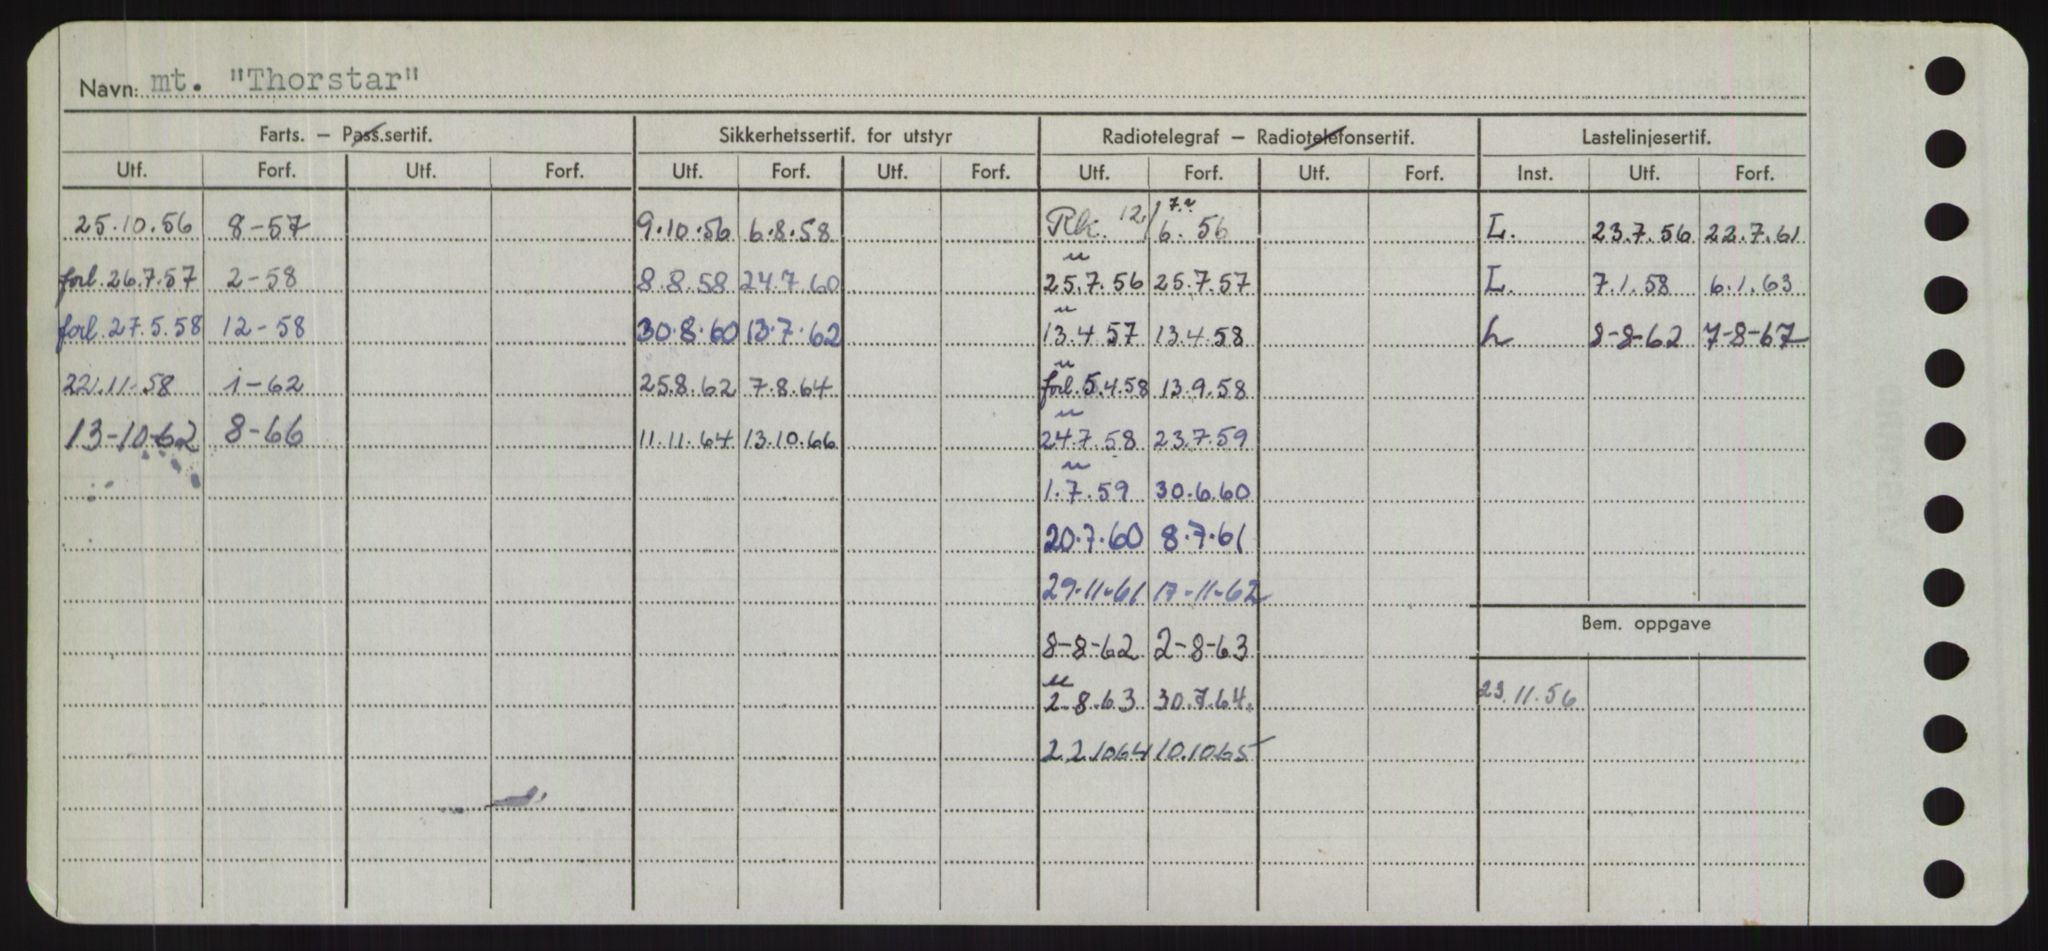 Navn: mt. "Thorstar"
Farts. – Pass.sertif. Sikkerhetssertif. for utstyr Radiotelegraf – Radiotelefonsertif. Lastelinjesertif.
Utf. Forf. Utf. Forf. Utf. Forf. Utf. Forf. Utf. Forf. Utf. Forf. Inst. Utf. Forf.
25.10.56 8-57 9.10.56 6.8.58 Rk. 12./6. 56 L. 23.7.56 22.7.61
forl. 26.7.57 2-58 8.8.58 24.7.60 25.7.56 25.7.57 L. 7.1.58 6.1.63
forl. 27.5.58 12-58 30.8.60 13.7.62 13.4.57 13.4.58 L 8-8-62 7-8-67
22.11.58 1-62 25.8.62 7.8.64 forl. 5.4.58 13.9.58
13-10-62 8-66 11.11.64 13.10.66 24.7.58 23.7.59
1.7.59 30.6.60
20.7.60 8.7.61
29.11.61 17-11-62
Bem. oppgave
8-8-62 2-8-63
2.8.63 30.7.64. 23.11.56
22.1064 10.1065